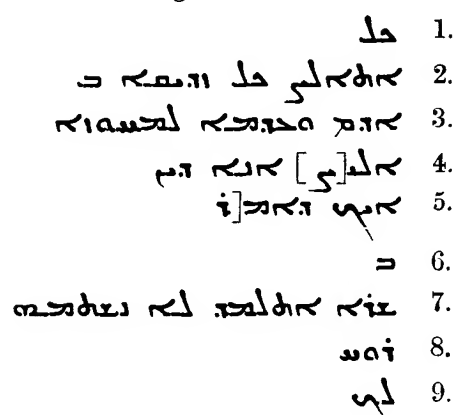 ܟܠ 1.
ܐܬܐܠܨ ܟܠ ܙܕܝܩܐ ܒ 2.
ܐܕܡ ܘܥܕܡܐ ܠܡܚܘܙܐ 3.
ܐܠܝ[ܨ] ܐܢܐ ܕܝܢ 4.
ܐܝܟ ܕܐܡ[ܪ 5.
ܒ 6.
ܫܪܐ ܐܬܠܡܕ. ܠܐ ܢܫܬܡܗ 7.
ܪܘܚ 8.
ܠܟ 9.